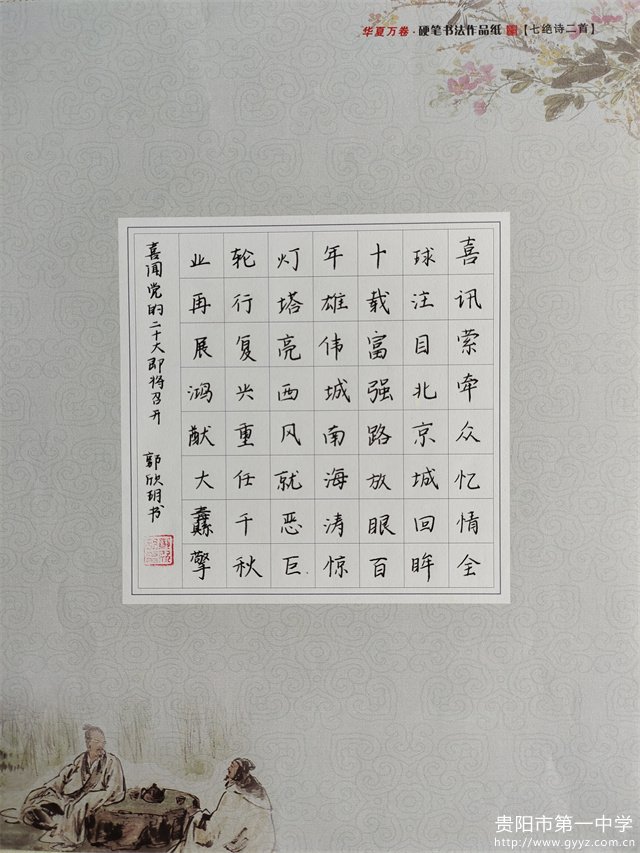 华夏万卷·硬笔书法作品纸【七绝诗二首】
喜讯萦牵众忆情全
球注目北京城回眸
十载富强路放眼百
年雄伟城南海涛惊
灯塔亮西风就恶巨
轮行复兴重任千秋
业再展鸿猷大纛擎
喜闻党的二十大即将召开 郭欣玥书
贵阳市第一中学
http://www.gyyz.com.cn